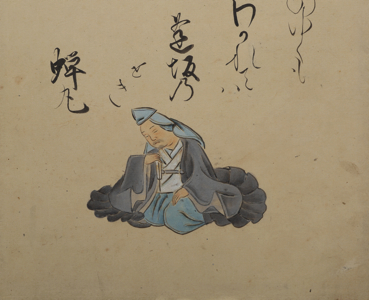 ゆくも
わかれ
逢坂乃
せき
蝉丸